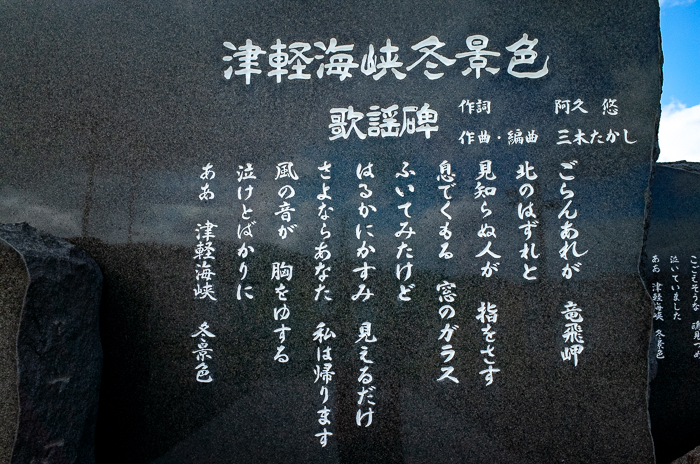 津軽海峡冬景色
歌謡碑
作詞　阿久　悠
作曲・編曲　三木たかし
ごらんあれが　竜飛岬
北のはずれと
見知らぬ人が　指をさす
息でくもる　窓のガラス
ふいてみたけど
はるかにかすみ　見えるだけ
さよならあなた　私は帰ります
風の音が　胸をゆする
泣けとばかりに
ああ　津軽海峡　冬景色
泣いていました
ああ　津軽海峡　冬景色